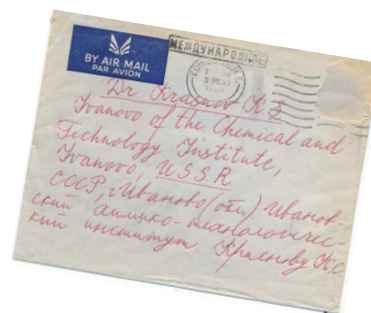 BY AIR MAIL
PAR AVION
МЕЖДУНАРОДНОЕ
Dr. Krasnov K.S.
Ivanovo of the Chemical and
Technology Institute,
Ivanovo, USSR
СССР, г. Иваново (обл.) Иванов-
ский химико-технологичес-
кий институт Краснову К.С.